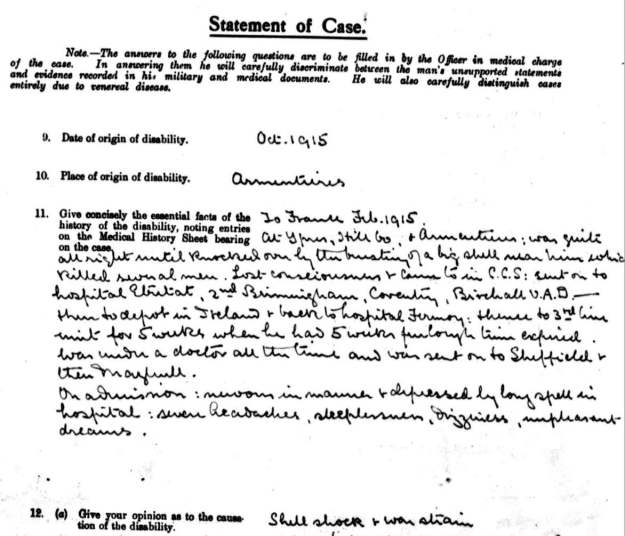 Statement of Case.
Note.—The answers to the following questions are to be filled in by the Officer in medical charge
of the case. In answering them he will carefully discriminate between the man's unsupported statements
and evidence recorded in his military and medical documents. He will also carefully distinguish cases
entirely due to venereal disease.
9. Date of origin of disability. Oct. 1915
10. Place of origin of disability. Armentieres
11. Give concisely the essential facts of the To France Feb. 1915.
history of the disability, noting entries
on the Medical History Sheet bearing At Ypres, Hill 60, & Armentieres; was quite
on the case.
all right until knocked over by the bursting of a big shell near him which
killed several men. Lost consciousness & came to in C.C.S: sent on to
hospital Etretat, 2nd Birmingham, Coventry, V.A.D. —
then to depot in Ireland & back to hospital Fermoy: thence to 3rd line
unit for 5 weeks when he had 5 weeks furlough time expired.
Was under a doctor all the time and was sent on to Sheffield &
then Maghull.
On admission: nervous in manner & depressed by long spell in
hospital: severe headaches, sleeplessness, dizziness, unpleasant
dreams.
12. (a) Give your opinion as to the causa-
tion of the disability. Shell shock & war strain